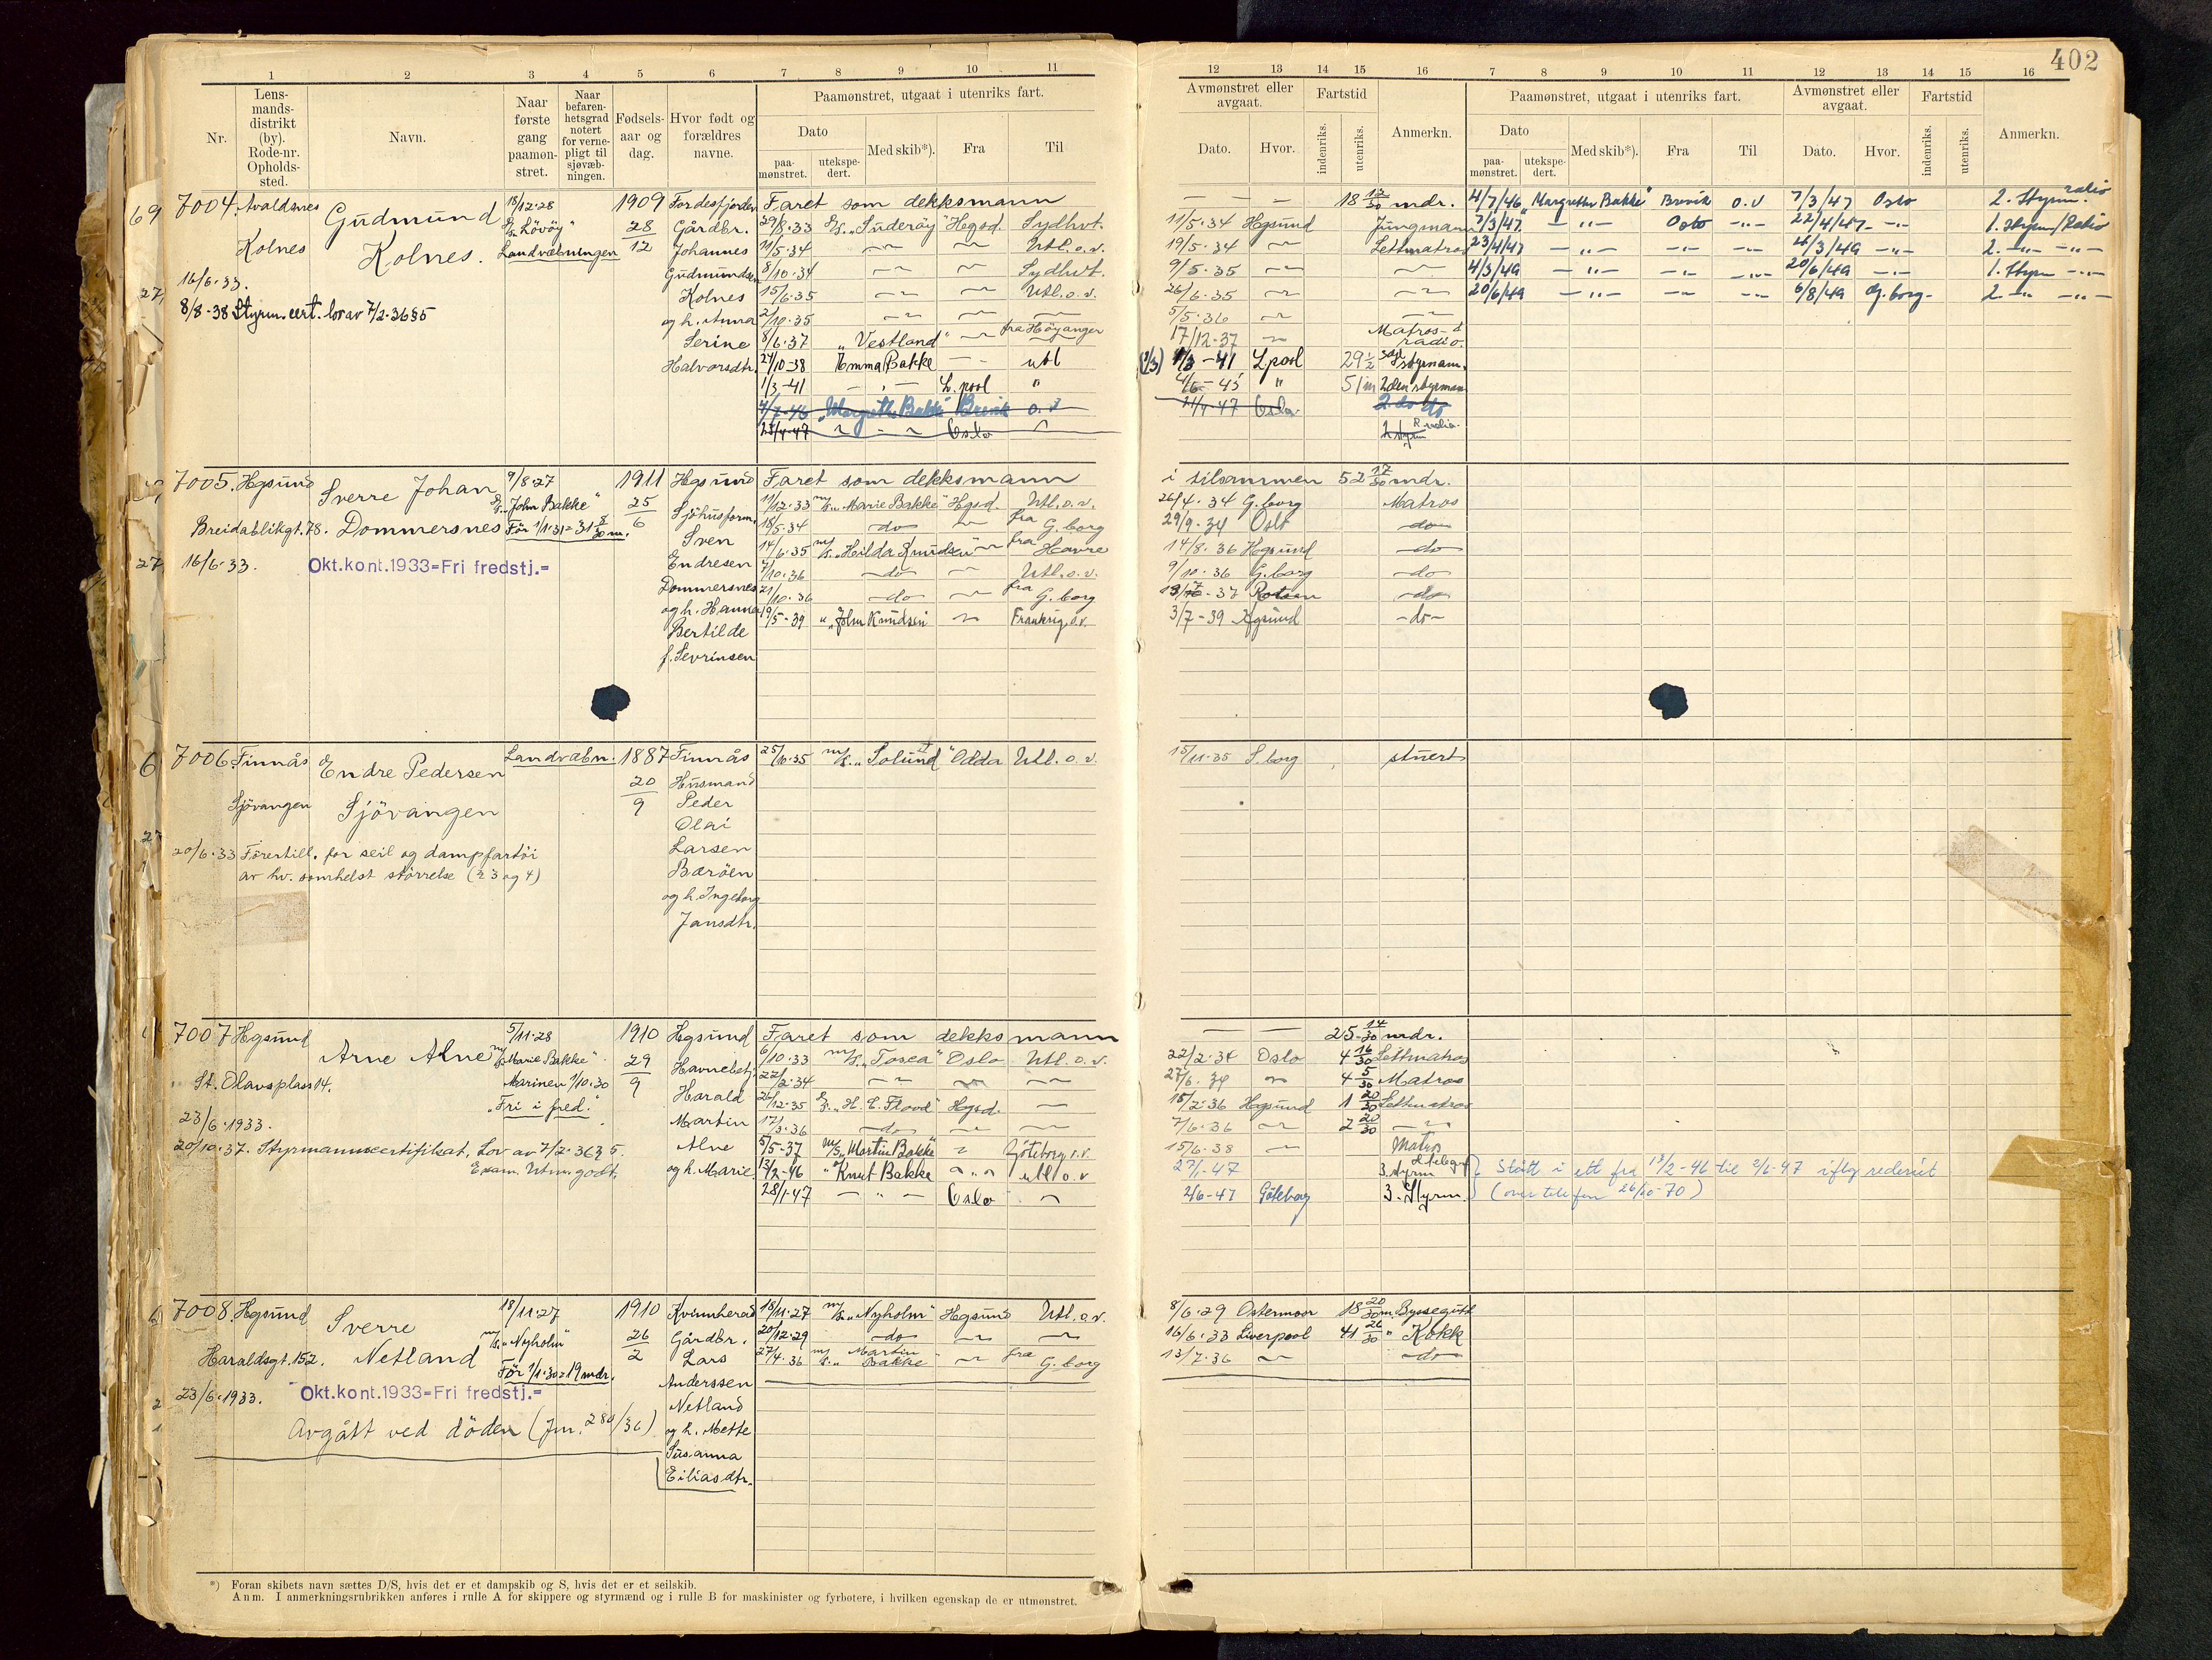 402
1 2 3 4 5 6 7 8 9 10 11
Nr.
Lens-
mands-
distrikt
(by).
Rode-nr.
Opholds-
sted.
Navn.
Naar
første
gang
paamøn-
stret.
Naar
befaren-
hetsgrad
notert
for verne-
pligt til
sjøvæb-
ningen.
Fødsels-
aar og
dag.
Hvor født og
forældres
navne.
Paamønstret, utgaat i utenriks fart.
Dato
paa-
mønstret.
utekspe-
dert.
Med skib*).
Fra
Til
12 13 14 15 16 7 8 9 10 11 12 13 14 15 16
Avmønstret eller
avgaat.
Dato.
Hvor.
Fartstid
indenriks.
utenriks.
Anmerkn.
Paamønstret, utgaat i utenriks fart.
Dato
paa-
mønstret.
utekspe-
dert.
Med skib*).
Fra
Til
Avmønstret eller
avgaat.
Dato.
Hvor.
Fartstid
indenriks.
utenriks.
Anmerkn.
69
7004. Avaldsnes
Kolnes
16/6.33.
8/8-38 Styrm.cert. lov av 7/2-36 §5
Gudmund
Kolnes.
18/12.28
D/S "Lövöy"
Landvæbningen
1909
28
12
Fördesfjorden
Gårdbr.
Johannes
Gudmundsen
Kolnes
og h. Anna
Serine
Halvorsdtr.
Faret som dekksmann
29/8.33 D/S. "Suderöy" Hegsd. Sydhvt.
11/5.34 Utl.o.v.
8/10.34 Sydhvt.
15/6.35 Utl.o.v.
2/10.35
8/6.37 "Vestland" fra Höyanger
27/10-38 Emma Bakke utl
1/3-41 L.pool "
4/7-46 "Margrethe Bakke" Brevik o.v
23/4-47 Oslo
18 12/30 mdr.
11/5.34 Hegsund Jungmann
19/5.34 Lettmatros
9/5.35
26/6.35
5/5.36
17/12.37 Matros-d
radio.
(1/3) 1/3-41 L pool 29 1/2 styrmann.
4/6-45 " 51 m 2den styrman
21/4-47 Oslo 2.do do
2 styrm R.radio.
4/7/46 "Margrethe Bakke" Brevik o.v 7/3/47 Oslo 2. Styrm. radio
7/3/47 -"- Oslo -"- 22/4/47 -"- 1. styrm/Radio
23/4/47 -"- -"- -"- 4/3/49 -"- 2. -"- -"-
4/3/49 -"- -"- -"- 20/6/49 -"- 1. Styrm -"-
20/6/49 -"- -"- -"- 6/8/49 G.borg- 2 -"- -"-
27
7005. Hgsund
Breidablikgt.78.
16/6.33.
Sverre Johan
Dommersnes
Okt.kont.1933=Fri fredstj.=
9/8.27
D/S "John Bakke"
För 1/1.31= 31 8/30 m.
1911
25
6
Hgsund
Sjöhusform.
Sven
Endresen
Dommersnes
og h. Hanna
Bertilde
f. Sevrinsen
Faret som dekksmann
11/12.33 m/s. "Marie Bakke" Hgsd. Utl.o.v.
18/5.34 do fra G.borg
14/6.35 m/s. "Hilda Knudsen" fra Havre
7/10.36 do Utl.o.v.
21/10.36 do fra G.borg
19/5-39 " "John Knudsen" Frankrig o.v.
i tilsammen 52 17/30 mdr.
26/4.34 G.borg Matros
29/9.34 Oslo do
14/8.36 Hgsund do
9/10.36 G.borg do
3/7-39 Hgsund -do-
27
7006. Finnås
Sjövangen
20/6.33 Förertill. for seil og dampfartöi
av hv. somhelst störrelse (§ 3 og 4)
Endre Pedersen
Sjövangen
Landvæbn.
1887
20
9
Finnås
Husmand
Peder
Olai
Larsen
Baröen
og h. Ingeborg
Jansdtr.
25/10.35 m/s. "Solund" Odda Utl. o. v.
15/11.35 S.borg stuert
7007 Hgsund
St. Olavsplass 14.
23/6.1933.
20/10.37. Styrmannscertifikat. Lov av 7/2-36 § 5.
Exam. Utm. godt.
Arne Alne
5/11.28
m/s "Marie Bakke".
Marinen 1/10.30
"Fri i fred."
1910
29
9
Hgsund
Havnebetj.
Harald
Martin
Alne
og h. Marie.
Faret som dekksmann
6/10.33 m/s. "Tosca" Oslo Utl. o. v.
22/2.34
26/12.35 D/S. "H. C. Flood" Hgsd.
17/3.36 do
5/5-37 M/S "Martin Bakke" Göteborg o.v.
13/2-46 " Knut Bakke utl o.v
28/1-47 - " - Oslo
25 14/30 mdr.
22/2.34 Oslo 4 16/30 Lettmatros
27/6.34 4 5/30 Matros
15/2.36 Hegsund 1 20/30 Lettmatros
7/6.36 2 20/30
15/6.38 Matros
27/1-47 3. styrm d telegr
2/6-47 Göteborg 3. Styrm.
Stått i ett fra 13/2-46 til 2/6-47 iflg rederiet
(over telefon 26/10-70)
7008. Hgsund
Haraldsgt.152.
23/6.1933.
Sverre
Netland
Okt.kont.1933=Fri fredstj.=
Avgått ved döden (Jnr. 280/36)
18/11.27
m/s. "Nyholm"
För 1/1.30=19 mdr.
1910
26
2
Kvinnherad
Gårdbr.
Lars
Anderssen
Netland
og h. Mette
Susanna
Eiliasdtr.
18/11.27 m/s. "Nyholm" Hgsund Utl.o.v.
20/12.29 do
27/4.36 m/s. Martin Bakke" fra G.borg
8/6.29 Ostermoor 18 20/30 m. Byssegutt
16/6.33 Liverpool 41 26/30 " Kokk
13/7.36 do
*) Foran skibets navn sættes D/S, hvis det er et dampskib og S, hvis det er et seilskib.
Anm. I anmerkningsrubrikken anføres i rulle A for skippere og styrmænd og i rulle B for maskinister og fyrbøtere, i hvilken egenskap de er utmønstret.